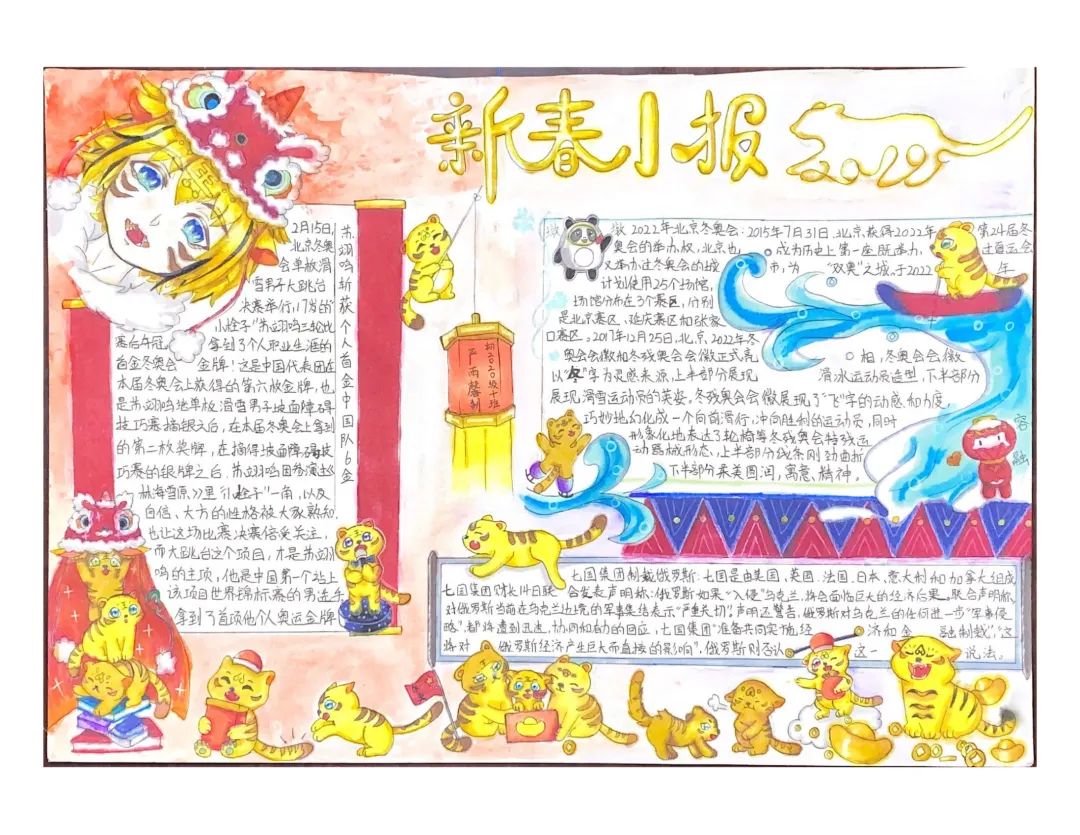 新春小报
2022
2月15日,
北京冬奥
会单板滑
雪男子大跳台
决赛举行,17岁的
小栓子"苏翊鸣三轮比
赛后夺冠,拿到3个人职业生涯的
首金冬奥会金牌!这是中国代表团在
本届冬奥会上获得的第六枚金牌,也
是苏翊鸣继单板滑雪男子坡面障碍
技巧赛摘银之后,在本届冬奥会上拿到
的第二枚奖牌,在摘得坡面障碍技
巧赛的银牌之后,苏翊鸣因参演过《
林海雪原》里"小栓子"一角,以及
自信、大方的性格被大家熟知,
也让这场比赛决赛倍受关注,
而大跳台这个项目,才是苏翊
鸣的主项,他是中国第一个站上
该项目世界锦标赛的男选手
拿到了首项他个人奥运金牌
苏翊鸣斩获个人首金中国队6金
初2020级十班
严雨馨制
2022年北京冬奥会:2015年7月31日,北京获得2022年第24届冬
奥会的举办权,北京也成为历史上第一座既举办过夏运会
又举办过冬奥会的城市,为"双奥"之城,于2022年
计划使用25个场馆,
场馆分布在3个赛区,分别
是北京赛区、延庆赛区和张家
口赛区。2017年12月25日,北京2022年冬
奥会会徽和冬残奥会会徽正式亮相,冬奥会会徽
以"冬"字为灵感来源,上半部分展现滑冰运动员造型,下半部分
展现滑雪运动员的英姿,冬残奥会会徽展现了"飞"字的动感和力度,
巧妙地幻化成一个向前滑行,冲向胜利的运动员,同时
形象化地表达了轮椅等冬残奥会特殊运
动器械形态,上半部分线条刚劲曲折
下半部分柔美圆润,寓意,精神,
容
融
七国集团制裁俄罗斯:七国是由美国、英国、法国、日本、意大利和加拿大组成
七国集团财长14日联会发表声明称:俄罗斯如果"入侵"乌克兰,将会面临巨大的经济后果。联合声明称,
对俄罗斯当前在乌克兰边境的军事集结表示"严重关切"。声明还警告,俄罗斯对乌克兰的任何进一步"军事侵
略"都将遭到迅速,协同和有力的回应,七国集团"准备共同实施经济和金融制裁","这
将对俄罗斯经济产生巨大而直接的影响",俄罗斯则否认这一说法。